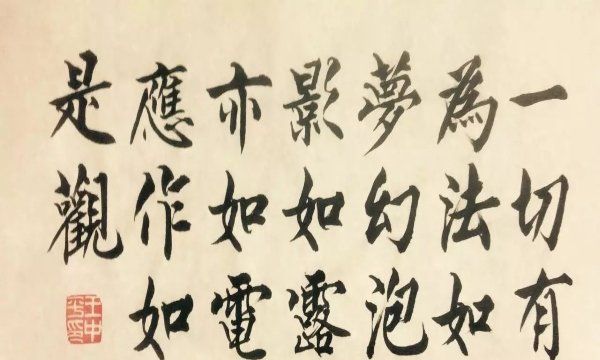 一切有
為法如
夢幻泡
影如露
亦如電
應作如
是觀
王中